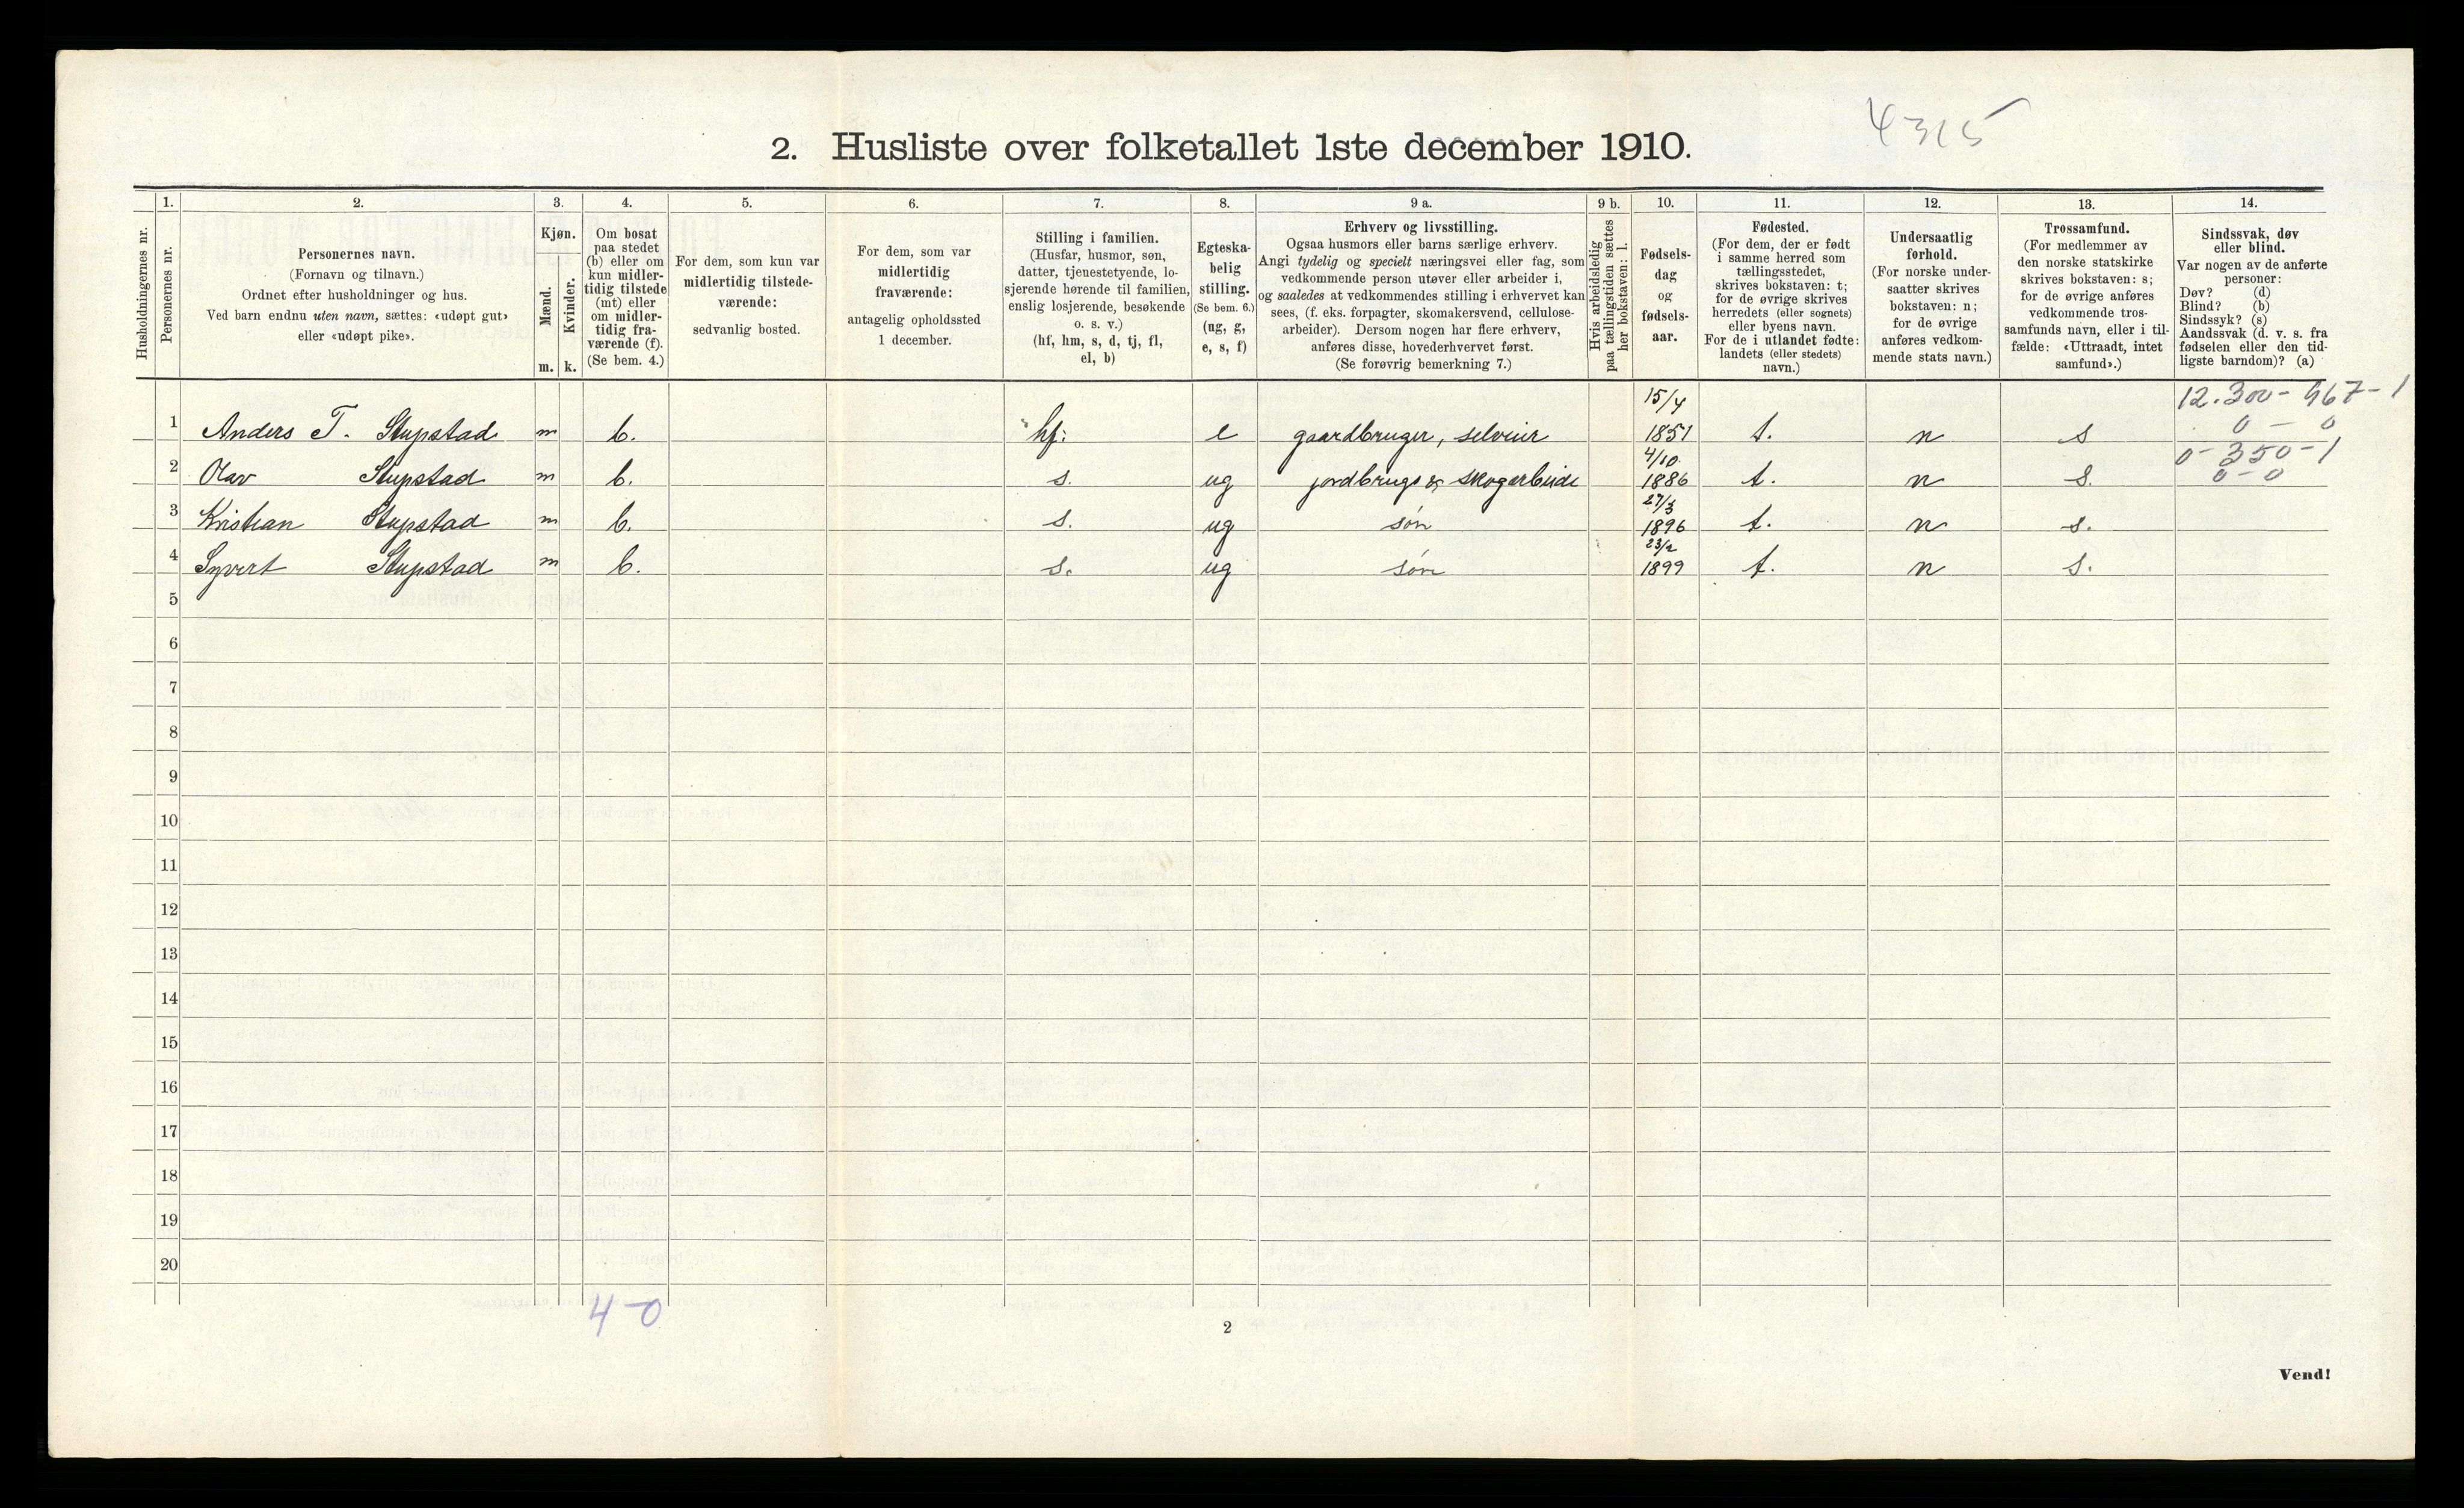 4315
2. Husliste over folketallet 1ste december 1910.
Husholdningernes nr.
1.
Personernes nr.
2.
Personernes navn.
(Fornavn og tilnavn.)
Ordnet efter husholdninger og hus.
Ved barn endnu uten navn, sættes: «udøpt gut»
eller «udøpt pike».
3.
Kjøn.
Mænd.
Kvinder.
m. k.
4.
Om bosat
paa stedet
(b) eller om
kun midler-
tidig tilstede
(mt) eller
om midler-
tidig fra-
værende (f).
(Se bem. 4.)
5.
For dem, som kun var
midlertidig tilstede-
værende:
sedvanlig bosted.
6.
For dem, som var
midlertidig
fraværende:
antagelig opholdssted
1 december.
7.
Stilling i familien.
(Husfar, husmor, søn,
datter, tjenestetyende, lo-
sjerende hørende til familien,
enslig losjerende, besøkende
o. s. v.)
(hf, hm, s, d, tj, fl,
el, b)
8.
Egteska-
belig
stilling.
(Se bem. 6.)
(ug, g,
e, s, f)
9 a.
Erhverv og livsstilling.
Ogsaa husmors eller barns særlige erhverv.
Angi tydelig og specielt næringsvei eller fag, som
vedkommende person utøver eller arbeider i,
og saaledes at vedkommendes stilling i erhvervet kan
sees, (f. eks. forpagter, skomakersvend, cellulose-
arbeider). Dersom nogen har flere erhverv,
anføres disse, hovederhvervet først.
(Se forøvrig bemerkning 7.)
9 b.
Hvis arbeidsledig
paa tællingstiden sættes
her bokstaven: l.
10.
Fødsels-
dag
og
fødsels-
aar.
11.
Fødested.
(For dem, der er født
i samme herred som
tællingsstedet,
skrives bokstaven: t;
for de øvrige skrives
herredets (eller sognets)
eller byens navn.
For de i utlandet fødte:
landets (eller stedets)
navn.)
12.
Undersaatlig
forhold.
(For norske under-
saatter skrives
bokstaven: n;
for de øvrige
anføres vedkom-
mende stats navn.)
13.
Trossamfund.
(For medlemmer av
den norske statskirke
skrives bokstaven: s;
for de øvrige anføres
vedkommende tros-
samfunds navn, eller i til-
fælde: «Uttraadt, intet
samfund».)
14.
Sindssvak, døv
eller blind.
Var nogen av de anførte
personer:
Døv? (d)
Blind? (b)
Sindssyk? (s)
Aandssvak (d. v. s. fra
fødselen eller den tid-
ligste barndom)? (a)
15/4 12.300-467-1
1 Anders T. Stupstad m b. hf: e gaardbruger, selveier 1851 t. n s 0 - 0
4/10 0-350-1
2 Olav Stupstad m b. s. ug jordbrugs & skogarbeide 1886 t. n s. 0-0
27/3
3 Kristian Stupstad m b. s. ug søn 1896 t. n s.
23/2
4 Syvert Stupstad m b. s. ug søn 1899 t. n s.
5
6
7
8
9
10
11
12
13
14
15
16
17
18
19
20
4-0
2
Vend!